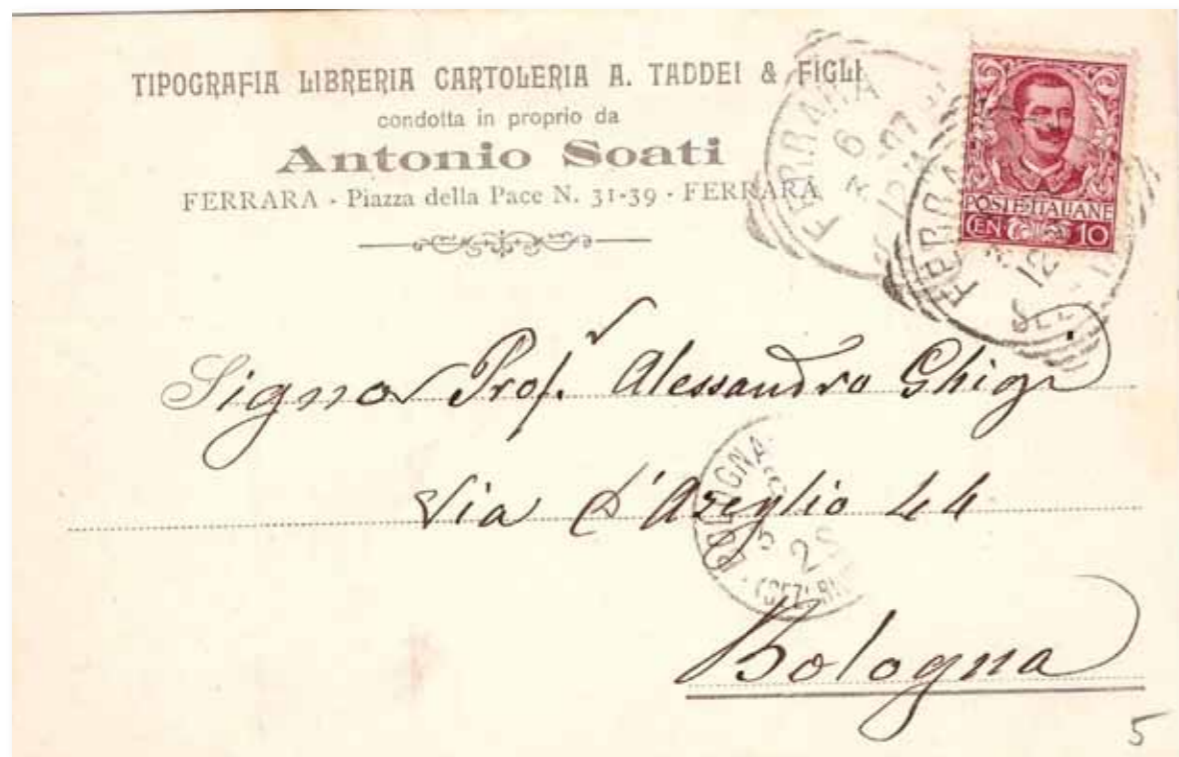 TIPOGRAFIA LIBRERIA CARTOLERIA A. TADDEI & FIGLI
condotta in proprio da
Antonio Soati
FERRARA - Piazza della Pace N. 31-39 - FERRARA
FERRARA
6
07
FERRARA
12
POSTE ITALIANE
CEN 10
Signor Prof. Alessandro Ghigi
Via d'Azeglio 44
BOLOGNA
Bologna
5